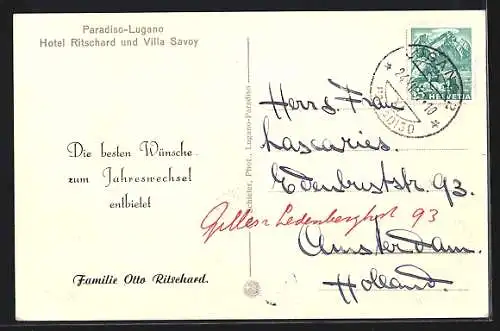 Paradiso-Lugano
Hotel Ritschard und Villa Savoy
Die besten Wünsche
zum Jahreswechsel
entbietet
Familie Otto Ritschard.
Phot., Lugano-Paradiso
HELVETIA
LUGANO 2
PARADISO
Herrs. Frau
Lascaries.
93.
Gilles Ledenberghst 93
Amsterdam.
Holland.